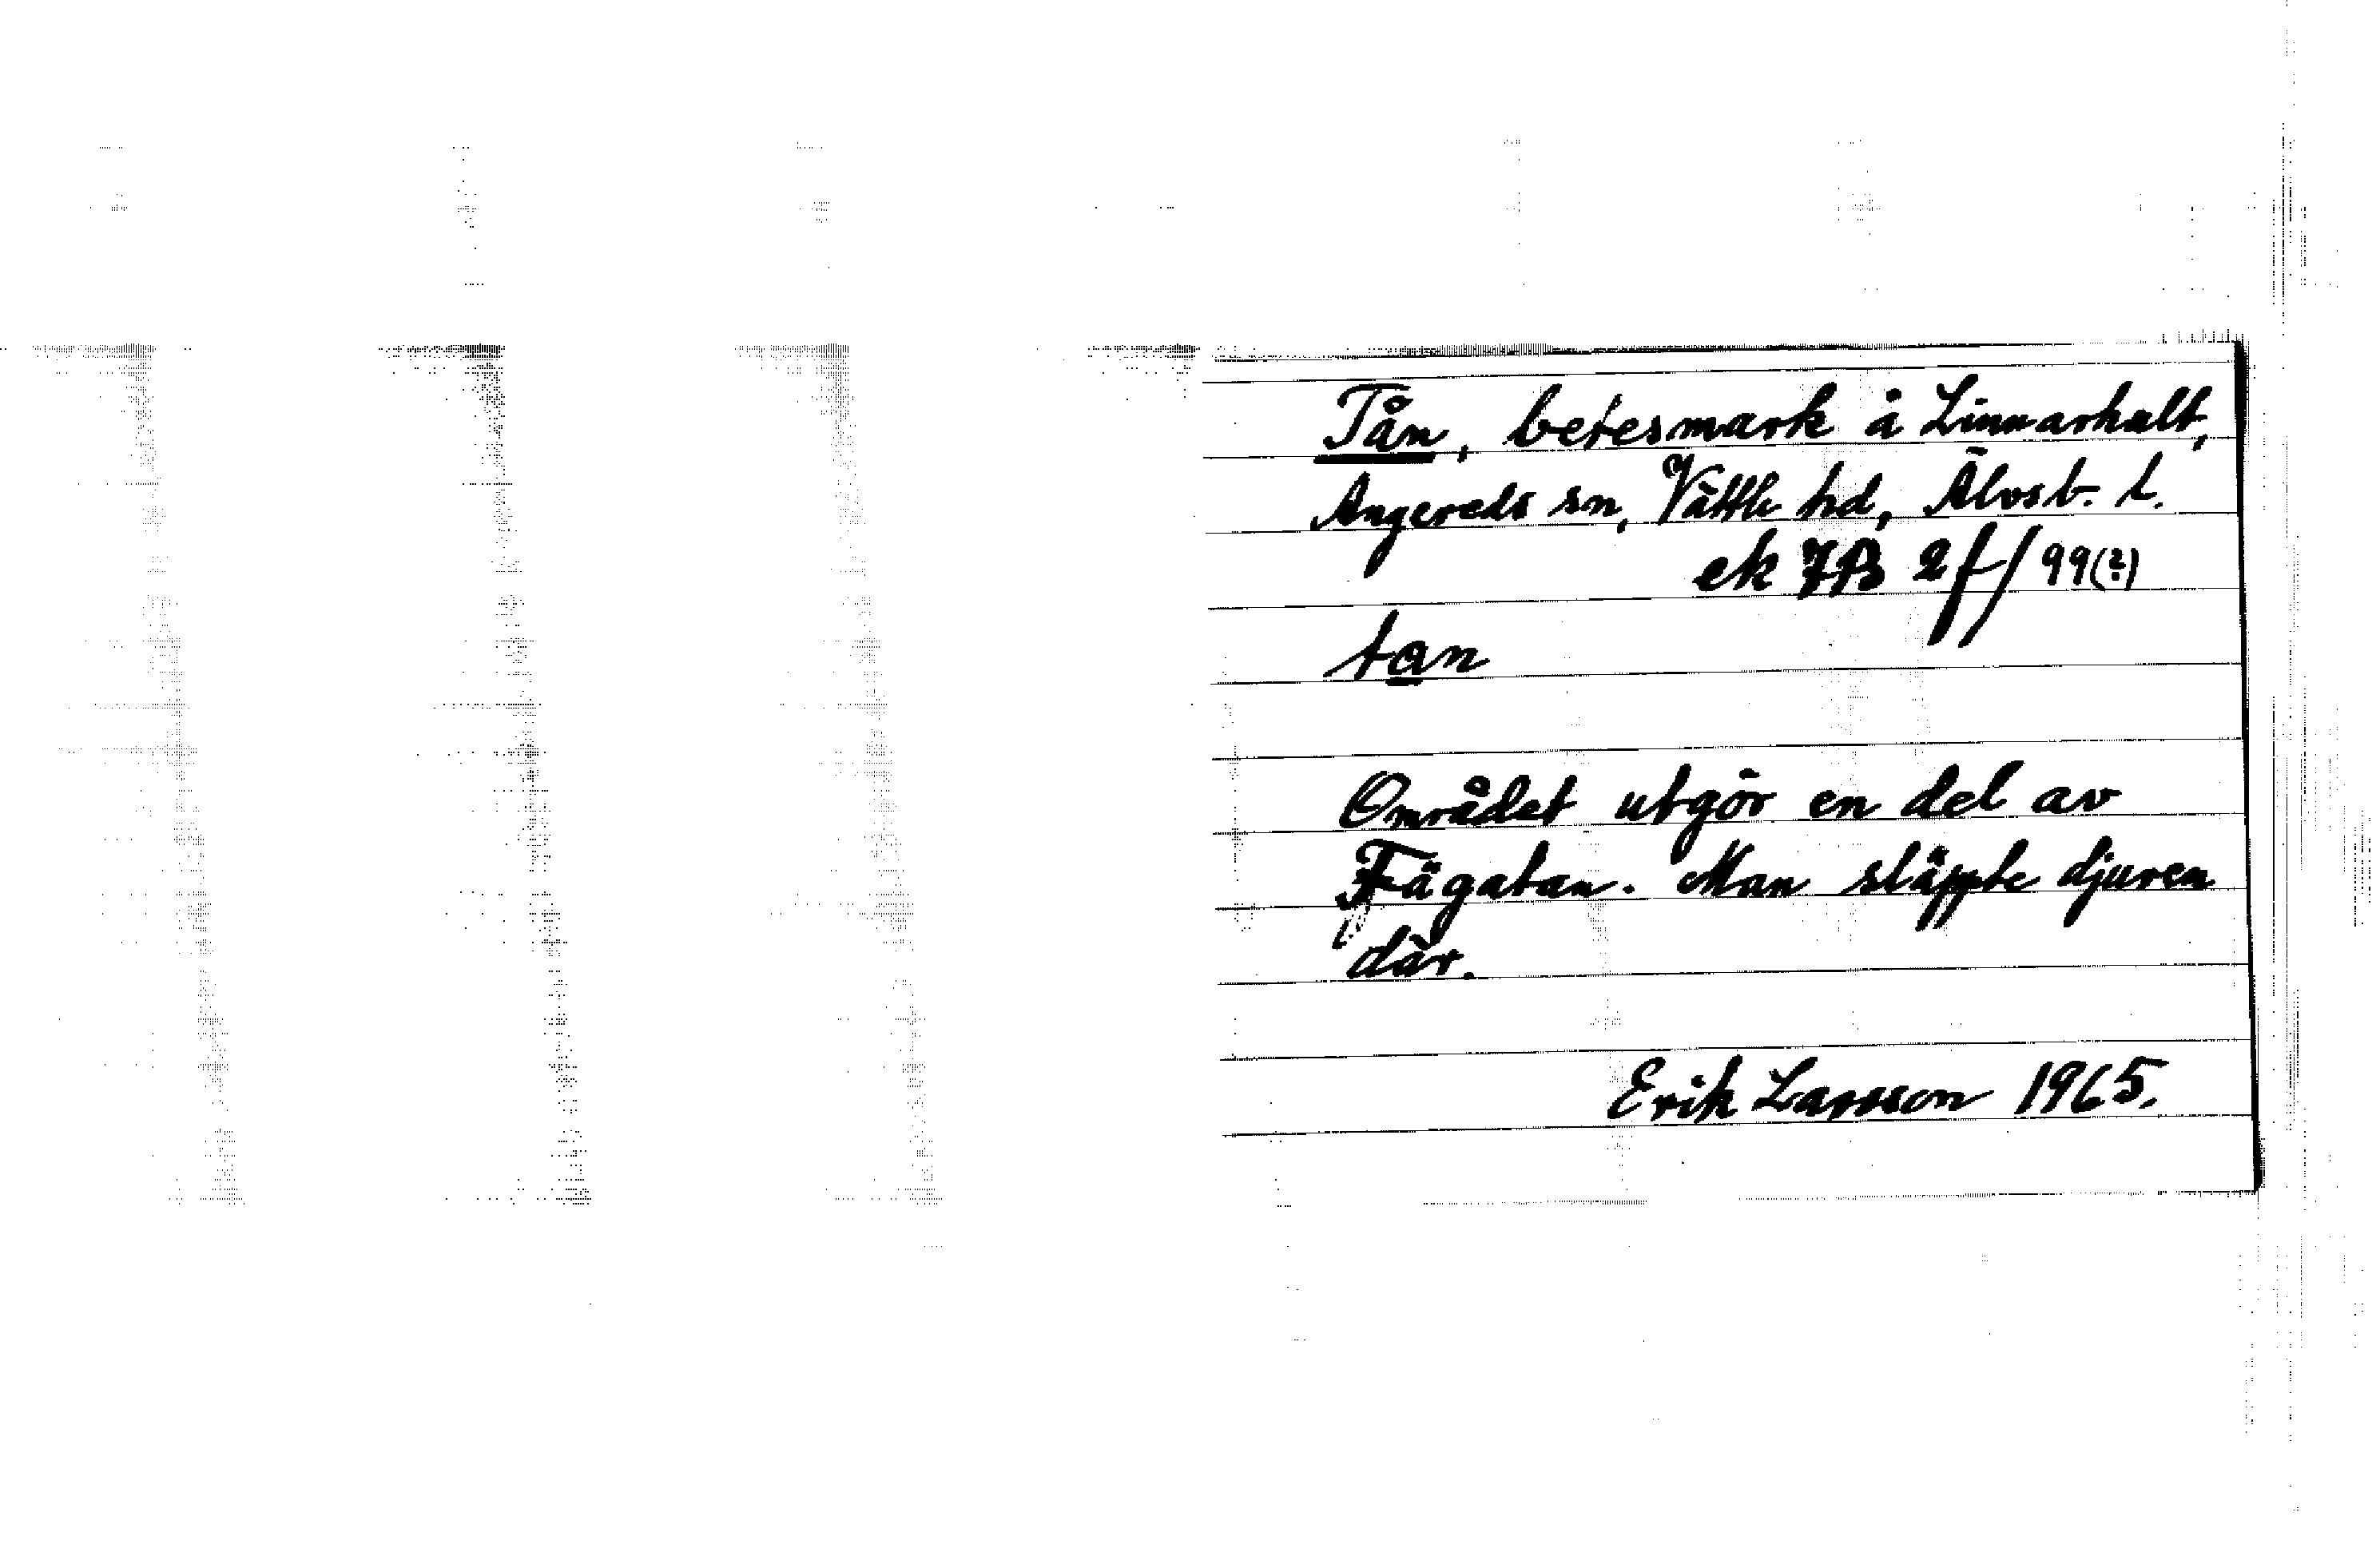 Tån, betesmark å Linnarhult,
Angereds sn, Vättle hd, Älvsb. l.
ek 7B 2f/99(?)
tan
Området utgör en del av
Fägatan. Man släppte djuren
där.
Erik Larsson 1965.